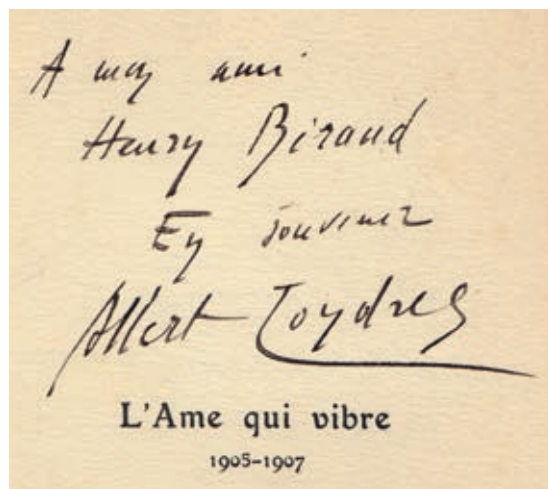 A mon ami
Henry Béraud
En souvenir
Albert Londres
L'Ame qui vibre
1905-1907